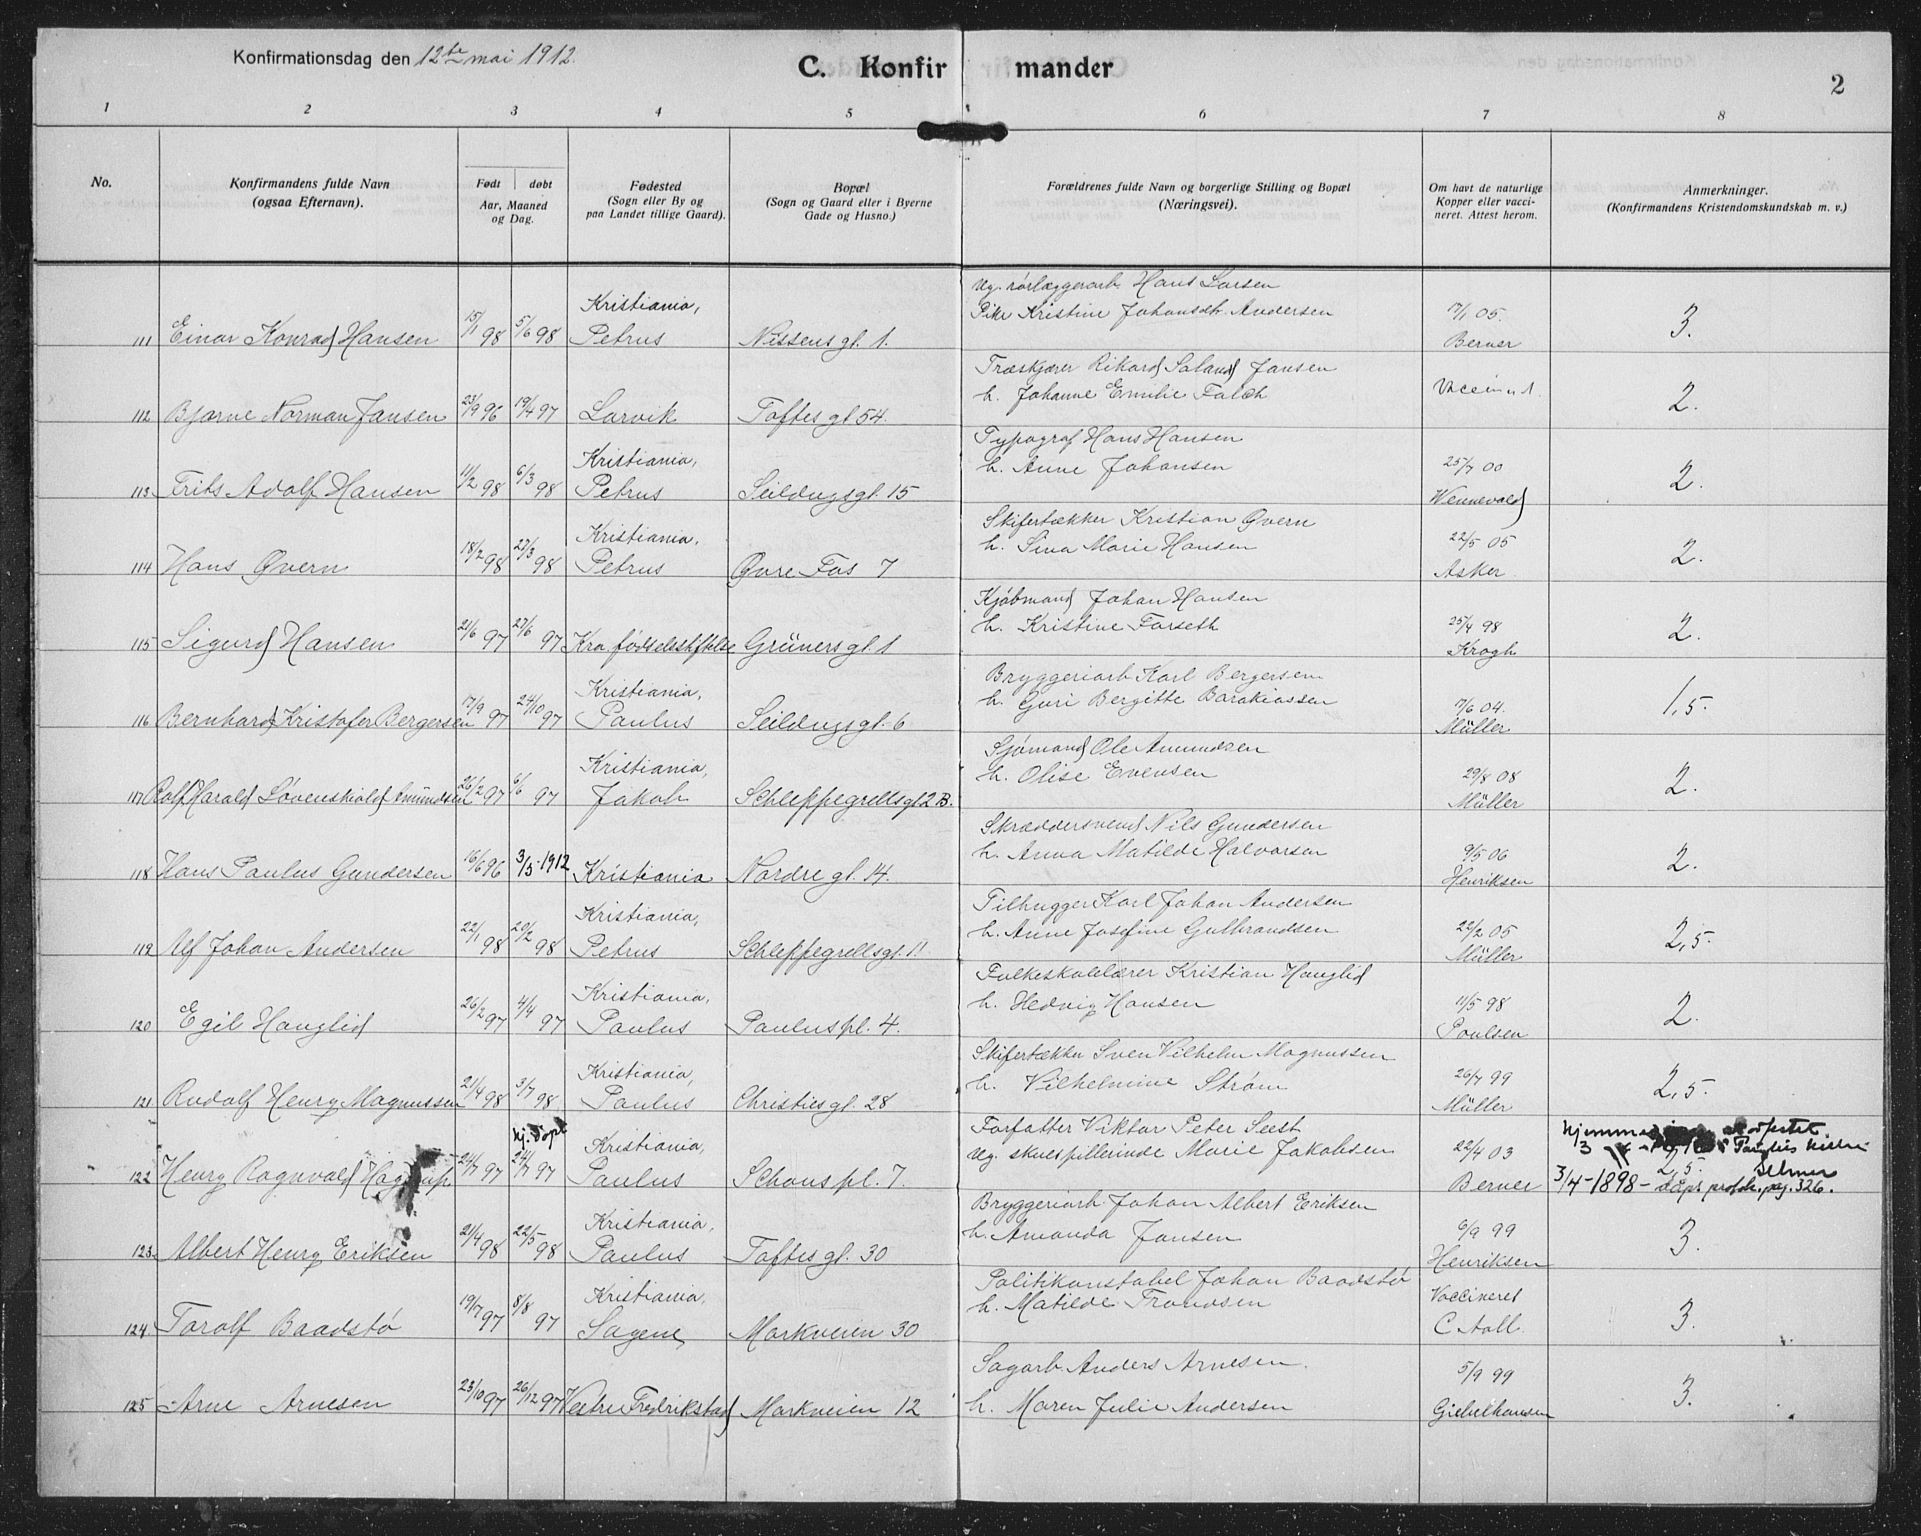 Konfirmationsdag den 12te mai 1912.
C. Konfirmander
2
1 2 3 4 5 6 7 8
No.
Konfirmandens fulde Navn
(ogsaa Efternavn).
Født døbt
Aar, Maaned
og Dag.
Fødested
(Sogn eller By og
paa Landet tillige Gaard).
Bopæl
(Sogn og Gaard eller i Byerne
Gade og Husno.)
Forældrenes fulde Navn og borgerlige Stilling og Bopæl
(Næringsvei).
Om havt de naturlige
Kopper eller vacci-
neret. Attest herom.
Anmerkninger.
(Konfirmandens Kristendomskundskab m. v.)
Kristiania, Ug. rørlæggerarb Hans Larsen
Pike Kristine Johansdtr. Andersen 7/1 05.
111 Einar Konrad Hansen 15/1 98 5/6 98 Petrus Nissens gt. 1. Berner 3.
Træskjærer Rikard Jansen
112 Bjarne Norman Jansen 23/9 96 19/4 97 Larvik Toftes gt 54. h. Johanne Emilie Falch 2.
Kristiania, Typograf Hans Hansen
h. Anne Johansen 25/7 00
113 Frits Adolf Hansen 11/2 98 6/3 98 Petrus Seildugsgt. 15 Wennevold 2.
Kristiania, Skifertækker Kristian Øvern
h. Sina Marie Hansen 22/5 05
114 Hans Øvern 18/2 98 27/3 98 Petrus Øvre Fos 7 Asker 2.
Kjøbmand Johan Hansen
h. Kristine Forseth 25/4 98
115 Sigurd Hansen 21/6 97 27/6 97 Kra fødselsstiftelse Grüners gt. 1 Krogh 2.
Kristiania, Bryggeriarb Karl Bergersen
h. Guri Bergitte Barakiassen 7/6 04.
116 Bernhard Kristofer Bergersen 17/9 97 24/10 97 Paulus Seildugsgt. 6 Müller 1,5.
Kristiania, Sjømand Ole Amundsen
h. Olise Evensen 29/8 08
117 Rolf Harald Løvenskiold Amundsen 26/2 97 6/6 97 Jakob Schleppegrellsgt 2 B. Müller 2.
Skræddersvend Nils Gundersen
h. Anna Matilde Halvorsen 9/5 06
118 Hans Paulus Gundersen 16/6 96 3/5-1912 Kristiania Nordre gt. 14. Henriksen 2.
Kristiania, Tilhugger Karl Johan Andersen
h. Anne Josefine Gulbrandsen 22/2 05
119 Alf Johan Andersen 22/1 98 20/2 98 Petrus Schleppegrellsgt. 11 Müller 2,5.
Kristiania, Folkeskolelærer Kristian Hauglid
h. Hedvig Hansen 11/5 98
120 Egil Hauglid 26/2 97 4/4 97 Paulus Paulus pl. 4. Poulsen 2.
Kristiania, Skifertækker Sven Vilhelm Magnussen
h. Vilhelmine Strøm 26/7 99
121 Rudolf Henry Magnussen 21/4 98 3/7 98 Paulus Christies gt. 28 Müller 2,5.
hj. døpt Kristiania, Forfatter Viktor Peter Seest
Ug. skuespillerinde Marie Jakobsen 22/4 03
122 Henry Ragnvald 24/7 97 24/7 97 Paulus Schous pl. 7. Berner 2,5.
3/4-1898- døpt. pag. 326.
Kristiania, Bryggeriarb Johan Albert Eriksen
h. Amanda Jansen 6/9 99
123 Albert Henry Eriksen 21/4 98 22/5 98 Paulus Toftes gt. 30 Henriksen 3.
Kristiania, Politikonstabel Johan Baadstø
h. Matilde Trondsen Vaccineret
124 Torolf Baadstø 19/7 97 8/8 97 Sagene Markveien 30 C Aall. 3.
Sagarb. Anders Arnesen.
5/9 99
125 Arne Arnesen 23/10 97 26/12 97 Vestre Fredrikstad Markveien 12 h. Maren Julie Andersen Giebelhausen 3.